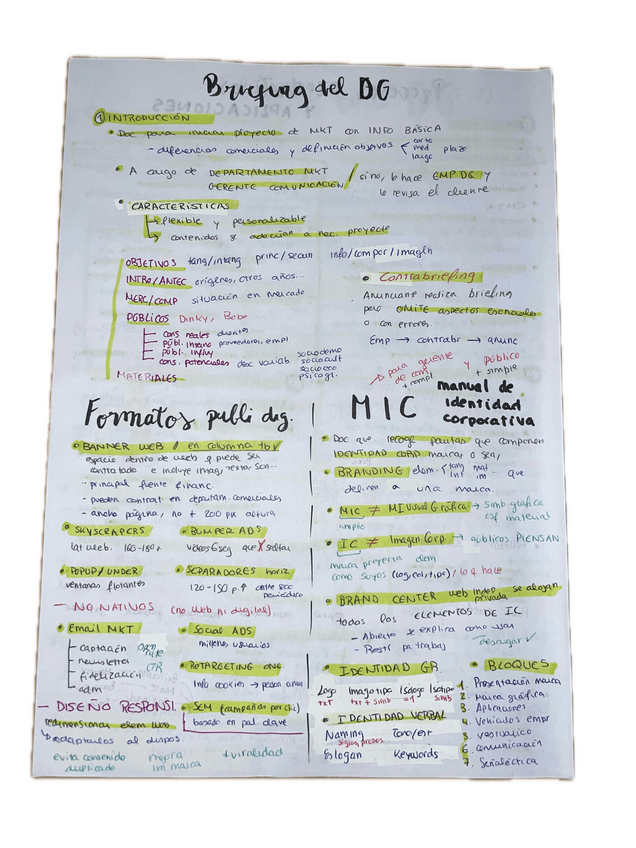 Briefing del DG
① INTRODUCCIÓN
• Doc para iniciar proyecto de MKT con INFO BÁSICA
- diferencias comerciales y definición objetivos < corto med largo plazo
• A cargo de DEPARTAMENTO MKT
GERENTE COMUNICACIÓN / sino, lo hace EMP DG y
lo revisa el cliente
• CARACTERÍSTICAS
flexible y personalizable
contenidos se adecúan a nec. proyecto
OBJETIVOS tang/intang princ/secun info/compor/imagen
INTRO/ANTEC orígenes, otros años...
MERC/COMP situación en mercado
PÚBLICOS Dinky, Bobo
cons reales clientes
públ. interno proveedores, empl
públ. influy
cons. potenciales desc variab sociodemo
sociocult
socioeco
psicogr.
MATERIALES
• Contrabriefing
Anunciante realiza briefing
pero OMITE aspectos esenciales
o con errores.
Emp → contrabr → anunc
→ para gerente y público
de com + simple
+ compl
Formatos publi dig.
• BANNER WEB / en columna tb ✓
espacio dentro de web q puede ser
contratado e incluye imag, texto, son...
- principal fuente financ.
- pueden contrat en departam. comerciales
- ancho página, no + 200 px altura
• SKYSCRAPERS
lat web. 160-180
• BUMPER ADS
vídeos 6 seg que X saltar
• POPUP/UNDER
ventanas flotantes
• SEPARADORES horiz
120-150 p. ↑ entre secc
periódico
— NO NATIVOS (no web ni digital)
• Email MKT
captación
newsletter
fidelización
adm
CTR
• Social ADS
millones usuarios
• RETARGETING
Info cookies →
— DISEÑO RESPONSI.
redimensionar elem web
↳ adaptarlos al dispos.
• SEM (campañas por clic)
basado en pal. clave
evita contenido
duplicado
mejora
im marca
+ viralidad
MIC manual de
identidad
corporativa
• Doc que recoge pautas que componen
IDENTIDAD CORP marca, o sea,
• BRANDING elem. < tang int mat im ... que
definen a una marca.
• MIC ≠ MI Visual Gráfica → simb gráfica
amplio
material
• IC ≠ Imagen Corp. → públicos PIENSAN
marca proyecta
como suyos (logo, col, tipo) / lo q hace
• BRAND CENTER web indep
privada se alojan
todos los ELEMENTOS DE IC
- Abierto se explica como usar
- Restr pa trabaj
Descargar ✓
• IDENTIDAD GR.
Logo Imagotipo Isologo Isotipo
txt txt + simb
• IDENTIDAD VERBAL
Naming Tono/estr
Slogan Keywords
• BLOQUES
1. Presentación marca
2. Marca gráfica
3. Aplicaciones
4. Vehículos empr
5. Vestuario
6. Comunicación
7. Señalética